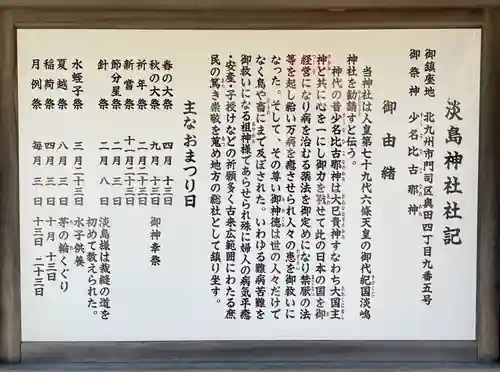 淡島神社社記
御鎮座地 北九州市門司区奥田四丁目九番五号
御祭神 少名比古那神
御由緒
当神社は人皇第七十九代六條天皇の御代紀国淡嶋
神社を勧請すと伝う。
神代の昔少名比古那神は大己貴神すなわち大国主
神と共に心を一にし御力を戮せて此の日本の国を御
経営になり病を治むる薬法を御定めになり禁厭の法
等を起し給い万病を癒させられ人々の患を御救いに
なった。そして、その尊い御神徳は世の人々だけで
なく鳥や畜にまで及ぼされた。いわゆる難病苦難を
御救いになる祖神様であらせられ殊に婦人の病気平癒
・安産・子授けなどの祈願多く古来広範囲にわたる庶
民の篤き崇敬を蒐め地方の総社として鎮り坐す。
主なおまつり日
春の大祭 四月十三日
秋の大祭 九月十三日 御神幸祭
祈年祭 二月十三日
新嘗祭 十一月二十三日
節分星祭 二月三日
針祭 二月八日 淡島様は裁縫の道を
初めて教えられた。
水蛭子祭 三月二十三日 水子供養
夏越祭 八月三日 茅の輪くぐり
稲荷祭 四月三日 十月十三日
月例祭 毎月三日 十三日 二十三日